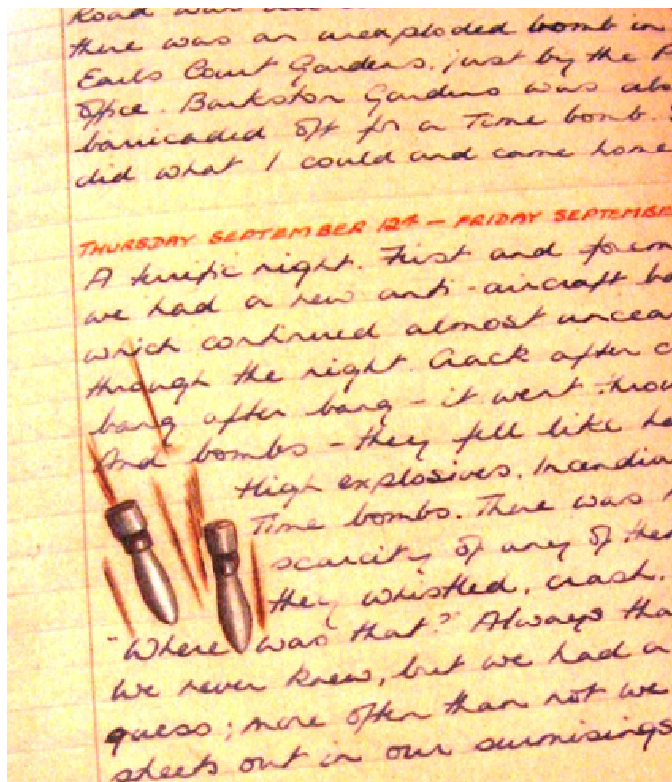 Road was
there was an unexploded bomb in
Earls Court Gardens, just by the
office. Barkston Gardens was abs
barricaded off for a Time bomb.
did what I could and came home
THURSDAY SEPTEMBER 12th — FRIDAY SEPTEMBE
A terrific night. First and forem
we had a new anti-aircraft ba
which continued almost uncea
through the night. Crack after c
bang after bang - it went throu
And bombs - they fell like ha
High explosives. Incendia
Time bombs. There was
scarcity of any of them
they whistled, crash.
"Where was that?" Always tha
We never knew, but we had a
guess; more often than not we
streets out in our surmisings